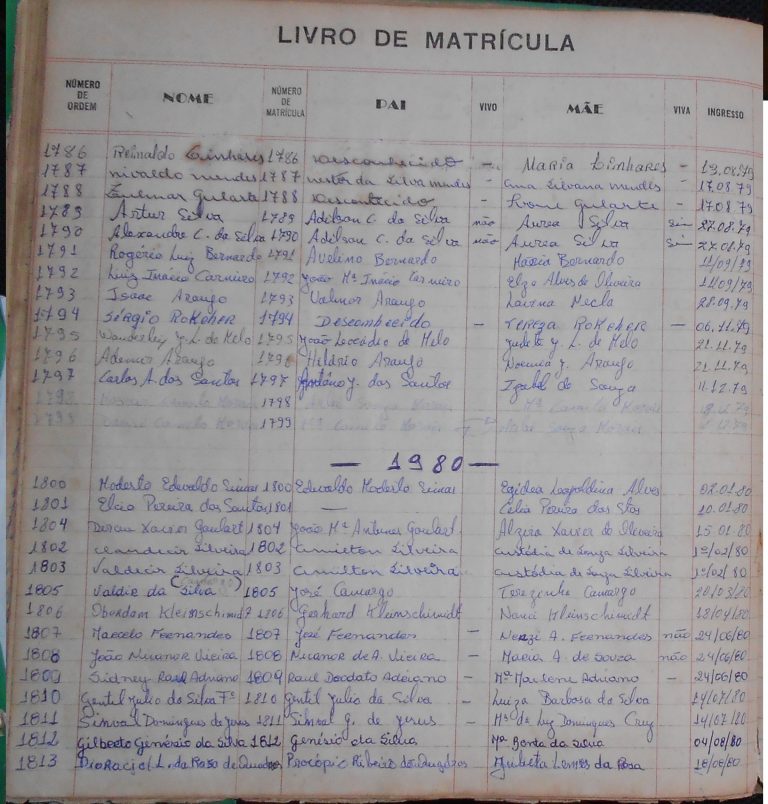 LIVRO DE MATRÍCULA
NÚMERO DE ORDEM NOME NÚMERO DE MATRÍCULA PAI VIVO MÃE VIVA INGRESSO
1786 Reinaldo Linhares 1786 Desconhecido - Maria Linhares - 19.08.79
1787 nivaldo mendes 1787 nestor da Silva mendes - ana Silvana mendes - 17.08.79
1788 Gularte 1788 - Gularte - 17.08.79
1789 Artur Silva 1789 Adilson C. da Silva não Aurea Silva Sim 27.08.79
1790 Alexandre C. da Silva 1790 Adilson C. da Silva não Aurea Silva Sim 27.08.79
1791 Rogério Luiz Bernardo 1791 Avelino Bernardo Márcia Bernardo 11/09/79
1792 Luiz Inácio Carneiro 1792 João Mª Inácio Carneiro Elza Alves de Oliveira 11/09/79
1793 Isaac Araujo 1793 Valmor Araujo 28.09.79
1794 Sérgio Rokeher 1794 Descombecido - Tereza Rokeher - 06.11.79
1795 Wanderley J. L. de Melo 1795 João Leocádio de Melo Judete J. L. de Melo 21.11.79
1796 Ademir Araujo 1796 Hilário Araujo Noemia J. Araujo 21.11.79
1797 Carlos A. dos Santos 1797 Antônio J. dos Santos Izabel de Souza 11.12.79
1798 1798
1799 1799
— 1980 —
1800 Modesto Edevaldo Simas 1800 Edevaldo Modesto Simas Egidea Leopoldina Alves 02.01.80
1801 Elcio Pereira dos Santos 1801 — Célia Pereira dos Stos 10.01.80
1804 Xavier Goulart 1804 João Mª Antunes Goulart Alzira Xavier de Oliveira 15.01.80
1802 Claudecir Silveira 1802 Amilton Silveira Custódia de Souza Silveira 1º/02/80
1803 Valdecir Silveira 1803 Amilton Silveira Custódia de Souza Silveira 1º/02/80
1805 Valdir da Silva (Camargo) 1805 José Camargo Terezinha Camargo 20/03/80
1806 Oberdam Kleinschimidt 1806 Gerhard Kleinschimidt Nani Kleinschimidt 18/04/80
1807 Marcelo Fernandes 1807 José Fernandes - Neuzi A. Fernandes não 24/06/80
1808 João Nicanor Vieira 1808 Nicanor de A. Vieira - Maria A. de Souza não 24/06/80
1809 Sidney Raul Adriano 1809 Raul Deodato Adriano - Mª Marlene Adriano - 24/06/80
1810 Gentil Julio da Silva Fº 1810 Gentil Julio da Silva - Luiza Barbosa da Silva 14/07/80
1811 Sinval Domingues de Jesus 1811 Sinval G. de Jesus - Mª da Luz Domingues Cruz 14/07/80
1812 Gilberto Genésio da Silva 1812 Genésio da Silva Mª Benta da Silva 04/08/80
1813 L. da Rosa de Quadros Procópio Ribeiro de Quadros Julieta Lemes da Rosa 18/08/80